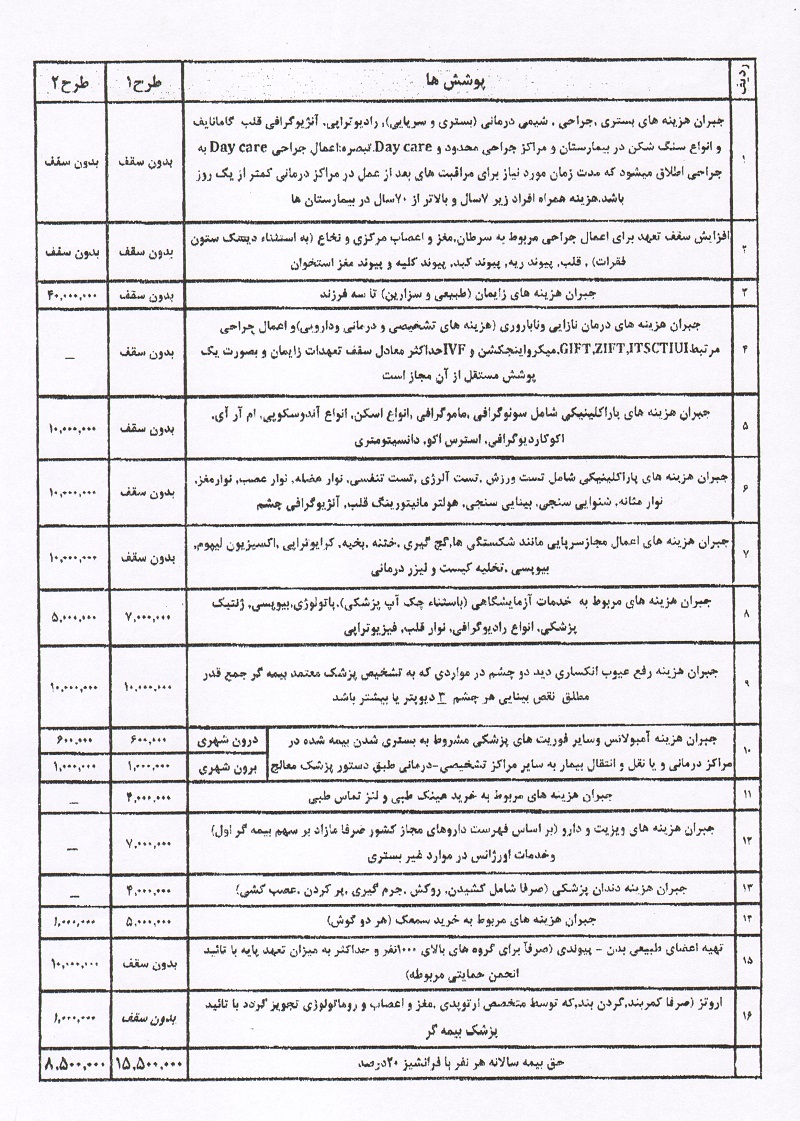 ردیف پوشش ها طرح۱ طرح۲
۱ جبران هزینه های بستری ,جراحی , شیمی درمانی (بستری و سرپایی), رادیوتراپی, آنژیوگرافی قلب گامانایف
و انواع سنگ شکن در بیمارستان و مراکز جراحی محدود و Day care.تبصره:اعمال جراحی Day care به
جراحی اطلاق میشود که مدت زمان مورد نیاز برای مراقبت های بعد از عمل در مراکز درمانی کمتر از یک روز
باشد.هزینه همراه افراد زیر ۷سال و بالاتر از ۷۰سال در بیمارستان ها
بدون سقف بدون سقف
۲ افزایش سقف تعهد برای اعمال جراحی مربوط به سرطان,مغز و اعصاب مرکزی و نخاع (به استثناء دیسک ستون
فقرات) , قلب, پیوند ریه, پیوند کبد, پیوند کلیه و پیوند مغز استخوان
بدون سقف بدون سقف
۳ جبران هزینه های زایمان (طبیعی و سزارین) تا سه فرزند بدون سقف ۴۰,۰۰۰,۰۰۰
۴ جبران هزینه های درمان نازایی وناباروری (هزینه های تشخیصی و درمانی ودارویی)و اعمال جراحی
مرتبطGIFT,ZIFT,ITSCTIUI,میکرواینجکشن و IVFحداکثر معادل سقف تعهدات زایمان و بصورت یک
پوشش مستقل از آن مجاز است
بدون سقف _
۵ جبران هزینه های پاراکلینیکی شامل سونوگرافی ,ماموگرافی ,انواع اسکن, انواع آندوسکوپی, ام آر آی,
اکوکاردیوگرافی, استرس اکو, دانسیتومتری
بدون سقف ۱۰,۰۰۰,۰۰۰
۶ جبران هزینه های پاراکلینیکی شامل تست ورزش ,تست آلرژی ,تست تنفسی, نوار عضله, نوار عصب, نوارمغز,
نوار مثانه, شنوایی سنجی, بینایی سنجی, هولتر مانیتورینگ قلب, آنژیوگرافی چشم
بدون سقف ۱۰,۰۰۰,۰۰۰
۷ جبران هزینه های اعمال مجازسرپایی مانند شکستگی ها,گچ گیری ,ختنه ,بخیه, کرایوتراپی ,اکسیزیون لیپوم,
بیوپسی ,تخلیه کیست و لیزر درمانی
بدون سقف ۱۰,۰۰۰,۰۰۰
۸ جبران هزینه های مربوط به خدمات آزمایشگاهی (باستثناء چک آپ پزشکی),پاتولوژی,بیوپسی, ژنتیک
پزشکی, انواع رادیوگرافی, نوار قلب, فیزیوتراپی
۷,۰۰۰,۰۰۰ ۵,۰۰۰,۰۰۰
۹ جبران هزینه رفع عیوب انکساری دید دو چشم در مواردی که به تشخیص پزشک معتمد بیمه گر جمع قدر
مطلق نقص بینایی هر چشم ۳ دیوپتر یا بیشتر باشد
۱۰,۰۰۰,۰۰۰ ۱۰,۰۰۰,۰۰۰
۱۰ جبران هزینه آمبولانس وسایر فوریت های پزشکی مشروط به بستری شدن بیمه شده در
مراکز درمانی و یا نقل و انتقال بیمار به سایر مراکز تشخیصی-درمانی طبق دستور پزشک معالج
درون شهری ۶۰۰,۰۰۰ ۶۰۰,۰۰۰
برون شهری ۱,۰۰۰,۰۰۰ ۱,۰۰۰,۰۰۰
۱۱ جبران هزینه های مربوط به خرید عینک طبی و لنز تماس طبی ۴,۰۰۰,۰۰۰ _
۱۲ جبران هزینه های ویزیت و دارو (بر اساس فهرست داروهای مجاز کشور صرفا مازاد بر سهم بیمه گر اول)
وخدمات اورژانس در موارد غیر بستری
۷,۰۰۰,۰۰۰ _
۱۳ جبران هزینه دندان پزشکی (صرفا شامل کشیدن, روکش ,جرم گیری ,پر کردن ,عصب کشی) ۴,۰۰۰,۰۰۰ _
۱۴ جبران هزینه های مربوط به خرید سمعک (هر دو گوش) ۵,۰۰۰,۰۰۰ ۱,۰۰۰,۰۰۰
۱۵ تهیه اعضای طبیعی بدن - پیوندی (صرفاً برای گروه های بالای ۱۰۰۰نفر و حداکثر به میزان تعهد پایه با تائید
انجمن حمایتی مربوطه)
بدون سقف ۱۰,۰۰۰,۰۰۰
۱۶ اروتز (صرفا کمربند,گردن بند,که توسط متخصص ارتوپدی ,مغز و اعصاب و روماتولوژی تجویز گردد با تائید
پزشک بیمه گر
بدون سقف ۱,۰۰۰,۰۰۰
حق بیمه سالانه هر نفر با فرانشیز ۲۰درصد ۱۵,۵۰۰,۰۰۰ ۸,۵۰۰,۰۰۰